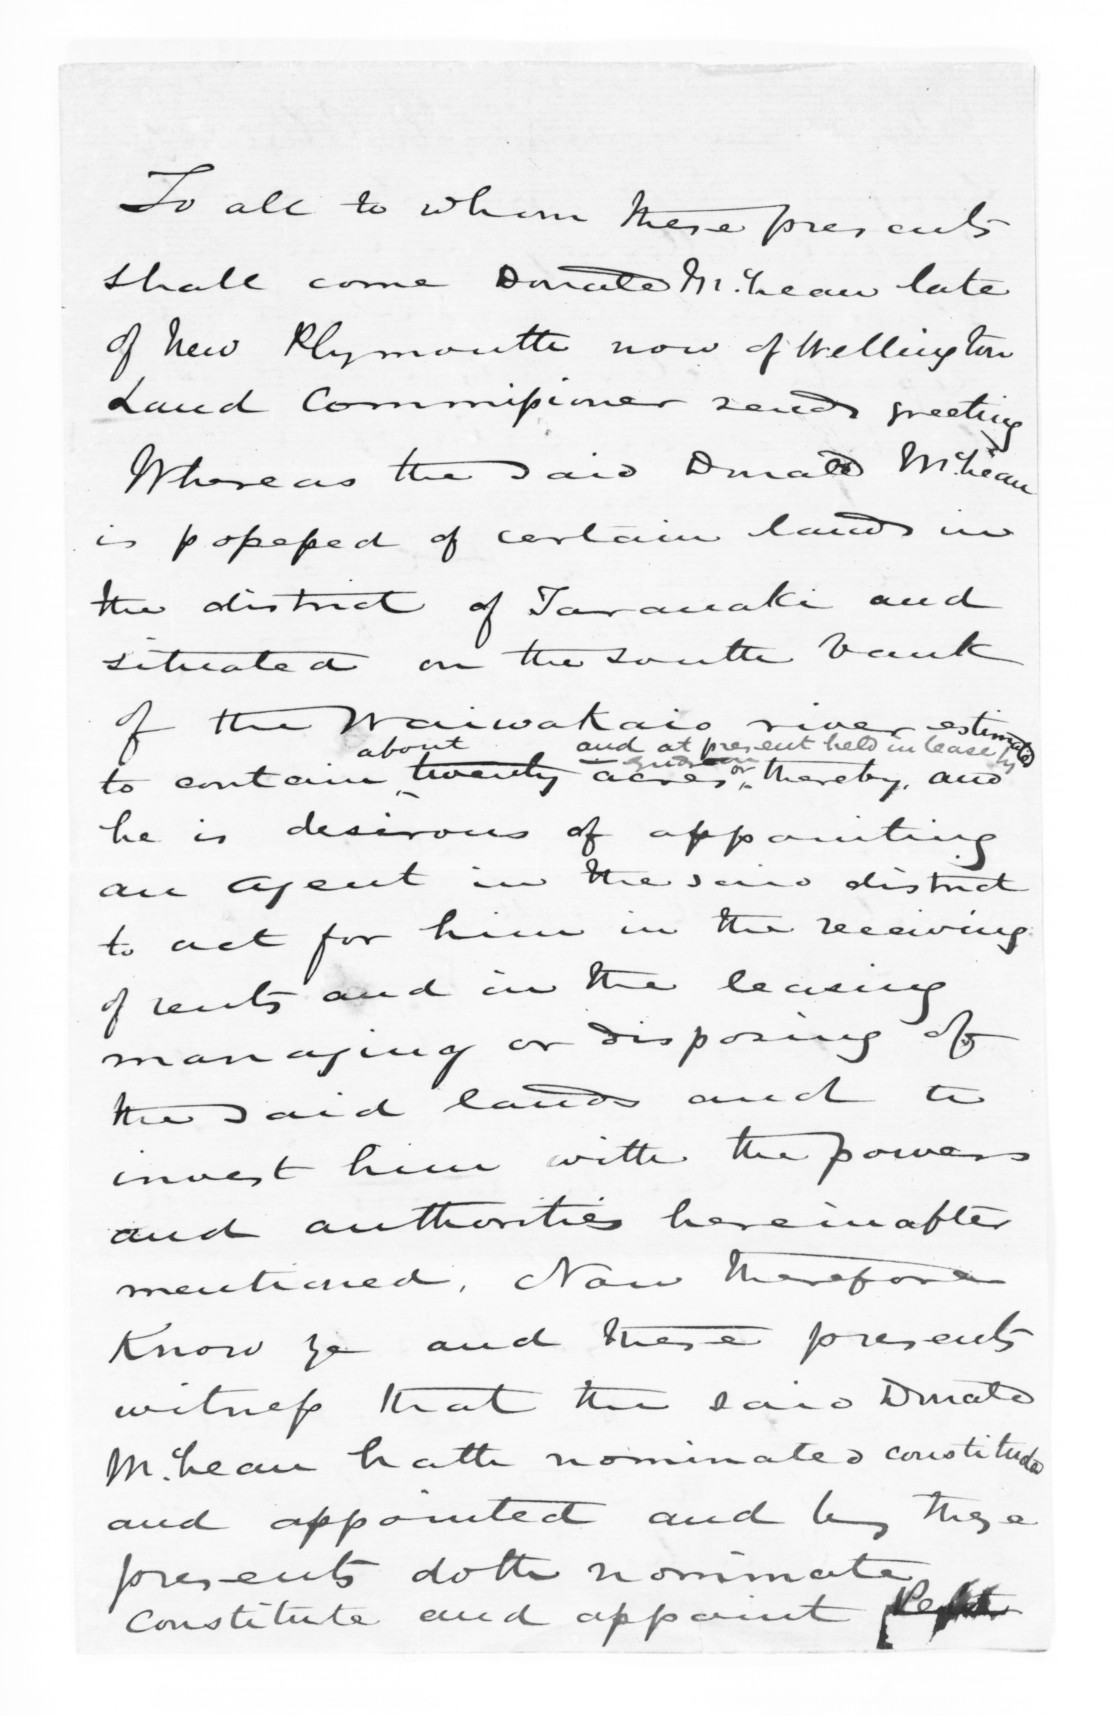 To all to whom these presents
shall come Donald McLean late
of New Plymouth now of Wellington
Land Commissioner sends greeting
Whereas the said Donald McLean
is possessed of certain lands in
the district of Taranaki and
situated on the south bank
of the Waiwakaio river estimated
about and at present held in lease by
to contain twenty acres, or thereby, and
he is desirous of appointing
an agent in the said district
to act for him in the receiving
of rents and in the leasing
managing or disposing of
the said lands and to
invest him with the powers
and authorities hereinafter
mentioned, Now therefore
Know ye and these presents
witness that the said Donald
McLean hath nominated constituted
and appointed and by these
presents doth nominate
constitute and appoint